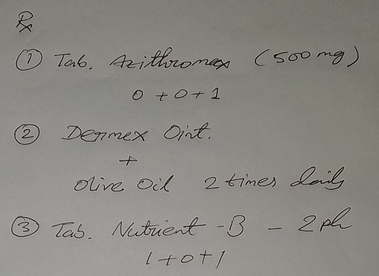 Rx
① Tab. Azithromax (500 mg)
0+0+1
② Dermex Oint.
+
Olive Oil 2 times daily
③ Tab. Nutrient-B - 2 ph
1+0+1